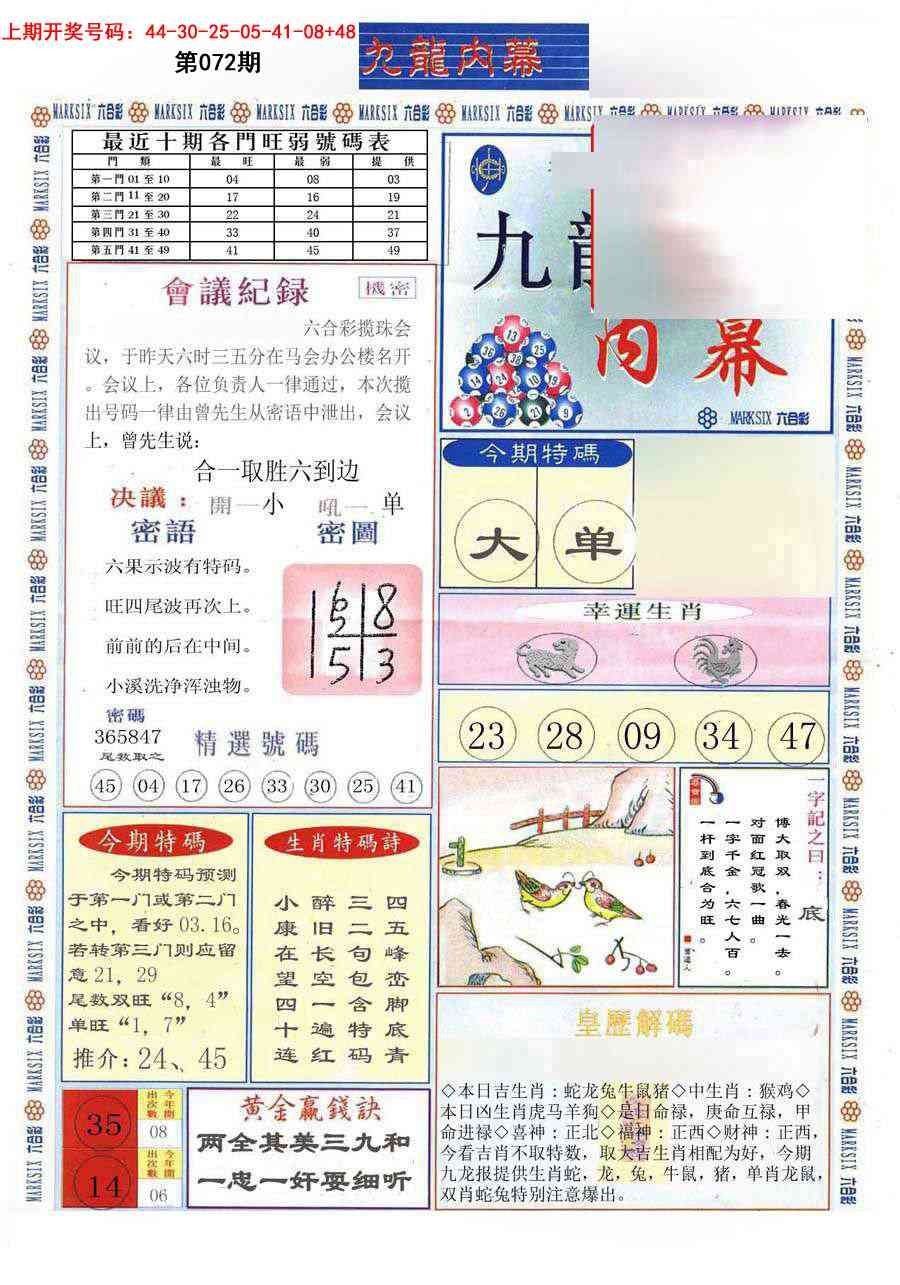 上期开奖号码：44-30-25-05-41-08+48
第072期
九龍内幕
MARKSIX 六合彩
最近十期各門旺弱號碼表
門 類 最 旺 最 弱 提 供
第一門 01 至 10 04 08 03
第二門 11 至 20 17 16 19
第三門 21 至 30 22 24 21
第四門 31 至 40 33 40 37
第五門 41 至 49 41 45 49
九
内幕
MARKSIX 六合彩
13
36 38 25
14 24 10 19
2 26 21 9
會議紀録
機密
六合彩揽珠会
议，于昨天六时三五分在马会办公楼名开
。会议上，各位负责人一律通过，本次揽
出号码一律由曾先生从密语中泄出，会议
上，曾先生说：
合一取胜六到边
决議：開一小 吼一 单
密語
六果示波有特码。
旺四尾波再次上。
前前的后在中间。
小溪洗净浑浊物。
密圖
8
5 3
密碼
365847
尾数取之
精選號碼
45 04 17 26 33 30 25 41
今期特碼
大 单
幸運生肖
23 28 09 34 47
一字記之曰：底
博大取双,春光一去。
对面红冠歌一曲。
一字千金,六七人百。
一杆到底合为旺。
今期特碼
今期特码预测
于第一门或第二门
之中，看好 03.16。
若转第三门则应留
意 21，29
尾数双旺“8，4”
单旺“1，7”
推介：24、45
生肖特碼詩
四五峰峦脚底青
三二旬包含特码
醉旧长空一遍红
小康在望四十连
皇歷解碼
◇本日吉生肖：蛇龙兔牛鼠猪◇中生肖：猴鸡◇
本日凶生肖虎马羊狗◇是日命禄，庚命互禄，甲
命进禄◇喜神：正北◇福神：正西◇财神：正西，
今看吉肖不取特数，取大吉生肖相配为好，今期
九龙报提供生肖蛇，龙，兔，牛鼠，猪，单肖龙鼠，
双肖蛇兔特别注意爆出。
35 今年開出次數 08
14 今年開出次數 06
黄金赢錢訣
两全其美三九和
一忠一奸耍细听